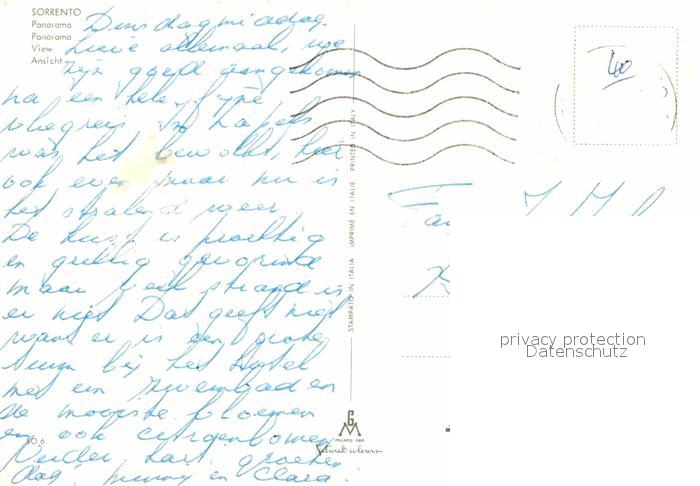 SORRENTO
Panorama
Panorama
View
Ansicht
Dinsdagmiddag.
Lieve allemaal, we
zijn goed aangekomen
na een hele fijne
vliegreis. In Napels
was het bewolkt, hier
ook even maar nu is
het stralend weer.
De kust is prachtig
en grillig gevormd
maar veel strand is
er niet. Dat geeft niet
want er is een grote
tuin bij het hotel
met een zwembad en
de mooiste bloemen
en ook citroenbomen
Verder hart. groeten
dag! en Clara.
STAMPATO IN ITALIA IMPRIMÉ EN ITALIE PRINTED IN ITALY
40
Fam
privacy protection
Datenschutz
G
M
natural colours